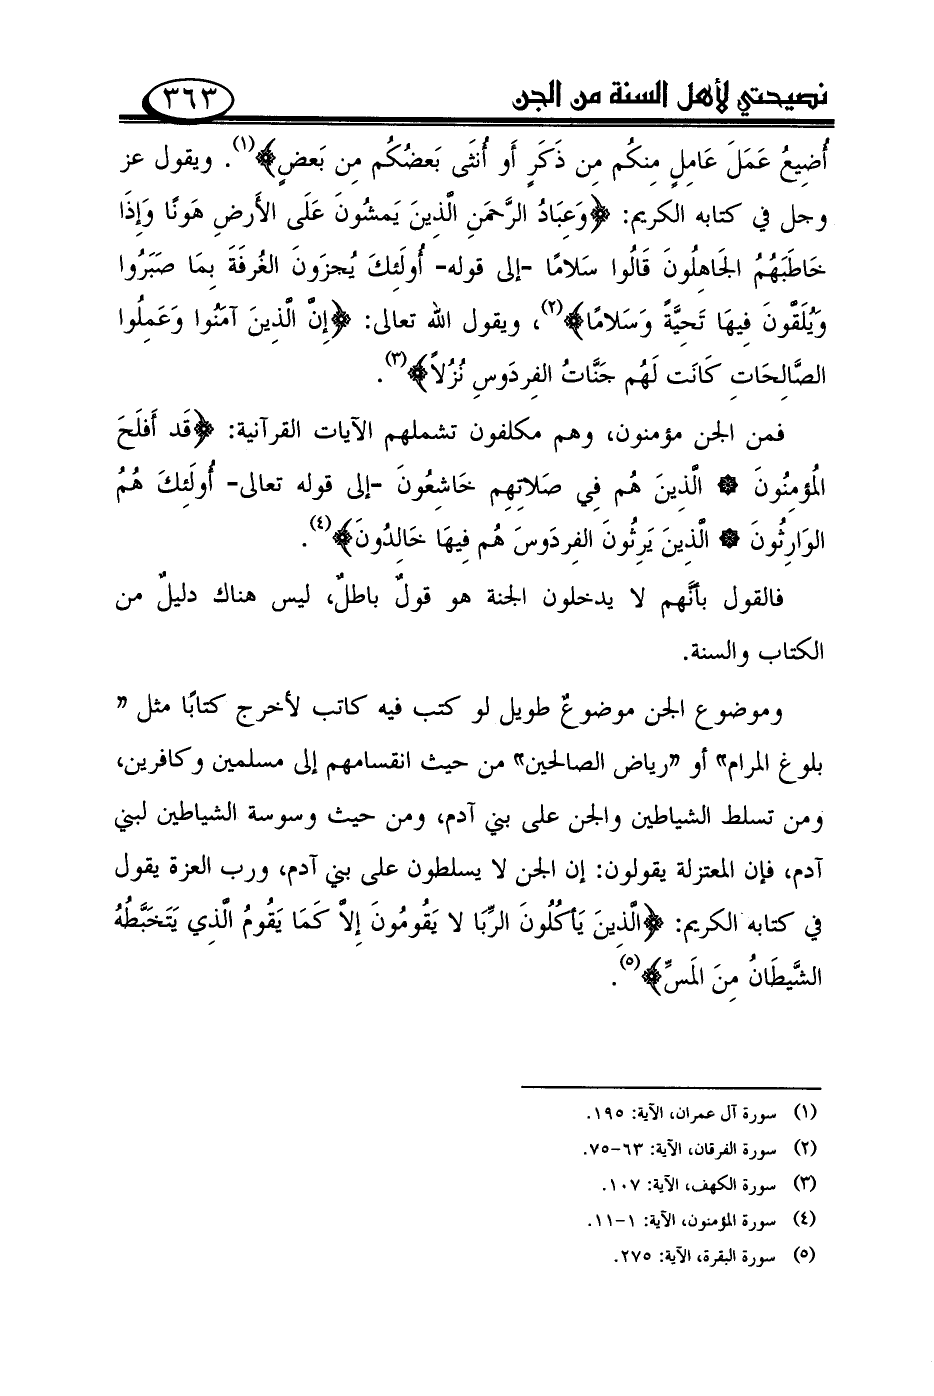 نصيحتي لأهل السنة من الجن ٣٦٣
أُضِيعُ عَمَلَ عَامِلٍ مِنكُم مِن ذَكَرٍ أَو أُنثَى بَعضُكُم مِن بَعضٍ﴾(١). ويقول عز
وجل في كتابه الكريم: ﴿وَعِبَادُ الرَّحمَنِ الَّذِينَ يَمشُونَ عَلَى الأَرضِ هَونًا وَإِذَا
خَاطَبَهُمُ الجَاهِلُونَ قَالُوا سَلامًا -إلى قوله- أُولَئِكَ يُجزَونَ الغُرفَةَ بِمَا صَبَرُوا
وَيُلَقَّونَ فِيهَا تَحِيَّةً وَسَلامًا﴾(٢)، ويقول الله تعالى: ﴿إِنَّ الَّذِينَ آمَنُوا وَعَمِلُوا
الصَّالِحَاتِ كَانَت لَهُم جَنَّاتُ الفِردَوسِ نُزُلاً﴾(٣).
فمن الجن مؤمنون، وهم مكلفون تشملهم الآيات القرآنية: ﴿قَد أَفلَحَ
المُؤمِنُونَ ۞ الَّذِينَ هُم فِي صَلاتِهِم خَاشِعُونَ -إلى قوله تعالى- أُولَئِكَ هُمُ
الوَارِثُونَ ۞ الَّذِينَ يَرِثُونَ الفِردَوسَ هُم فِيهَا خَالِدُونَ﴾(٤).
فالقول بأنَّهم لا يدخلون الجنة هو قولٌ باطلٌ، ليس هناك دليلٌ من
الكتاب والسنة.
وموضوع الجن موضوعٌ طويل لو كتب فيه كاتب لأخرج كتابًا مثل "
بلوغ المرام" أو "رياض الصالحين" من حيث انقسامهم إلى مسلمين وكافرين،
ومن تسلط الشياطين والجن على بني آدم، ومن حيث وسوسة الشياطين لبني
آدم، فإن المعتزلة يقولون: إن الجن لا يسلطون على بني آدم، ورب العزة يقول
في كتابه الكريم: ﴿الَّذِينَ يَأكُلُونَ الرِّبَا لا يَقُومُونَ إِلاَّ كَمَا يَقُومُ الَّذِي يَتَخَبَّطُهُ
الشَّيطَانُ مِنَ المَسِّ﴾(٥).
(١) سورة آل عمران، الآية: ١٩٥.
(٢) سورة الفرقان، الآية: ٦٣-٧٥.
(٣) سورة الكهف، الآية: ١٠٧.
(٤) سورة المؤمنون، الآية: ١-١١.
(٥) سورة البقرة، الآية: ٢٧٥.